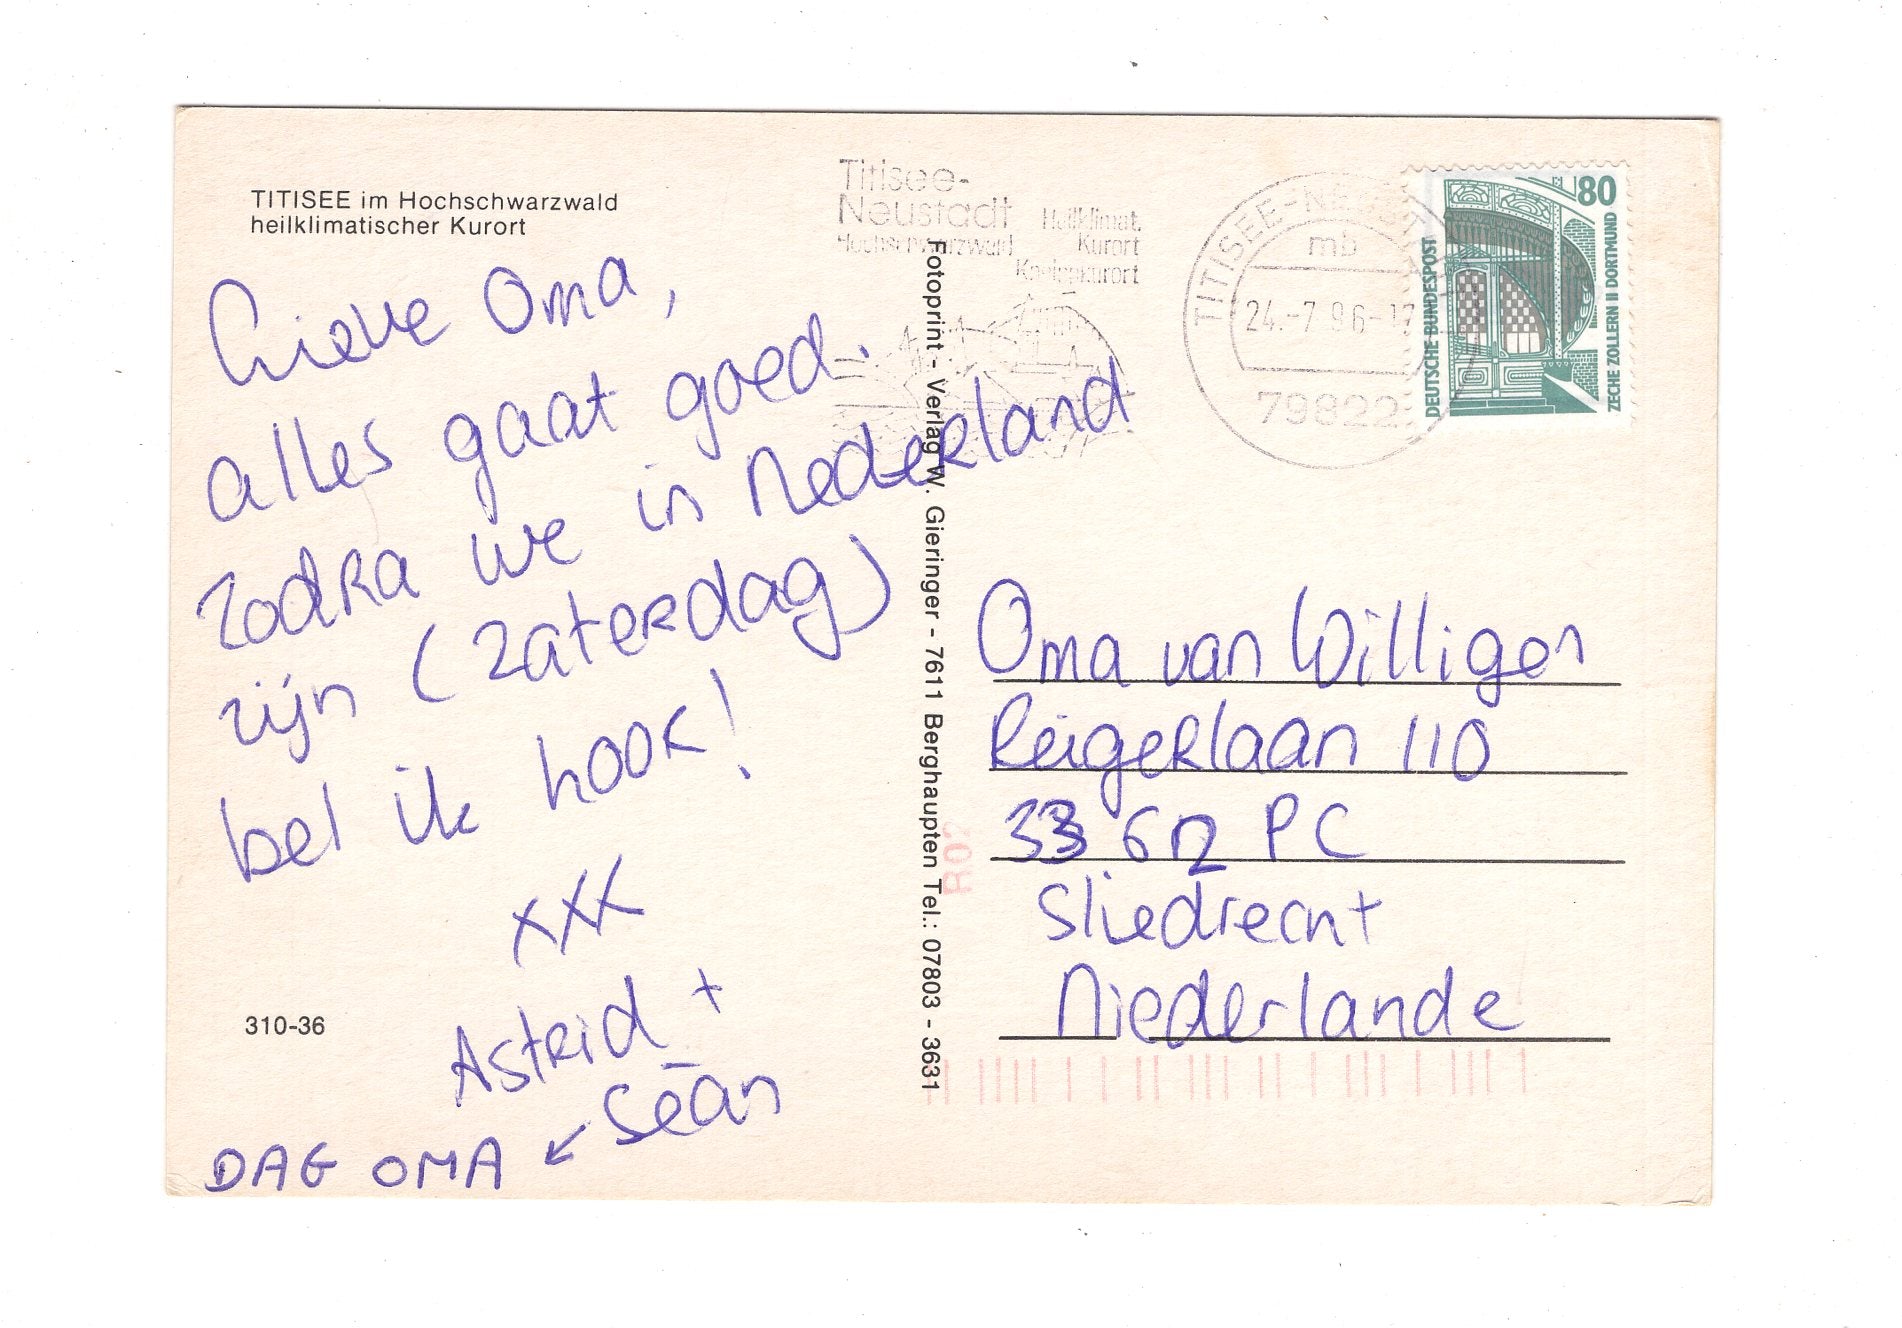 TITISEE im Hochschwarzwald
heilklimatischer Kurort
Lieve Oma,
alles gaat goed.
zodra we in Nederland
zijn (zaterdag)
bel ik hoor!
xxx
Astrid +
Séan
DAG OMA ↙
310-36
Fotoprint - Verlag W. Gieringer - 7611 Berghaupten Tel.: 07803 - 3631
Titisee-
Neustadt
Hochschwarzwald
Heilklimat.
Kurort
Kneippkurort
TITISEE-NEUST
mb
24.-7.96-17
79822
80
DEUTSCHE BUNDESPOST
ZECHE ZOLLERN II DORTMUND
Oma van Willigen
Reigerlaan 110
33 62 PC
Sliedrecht
Niederlande